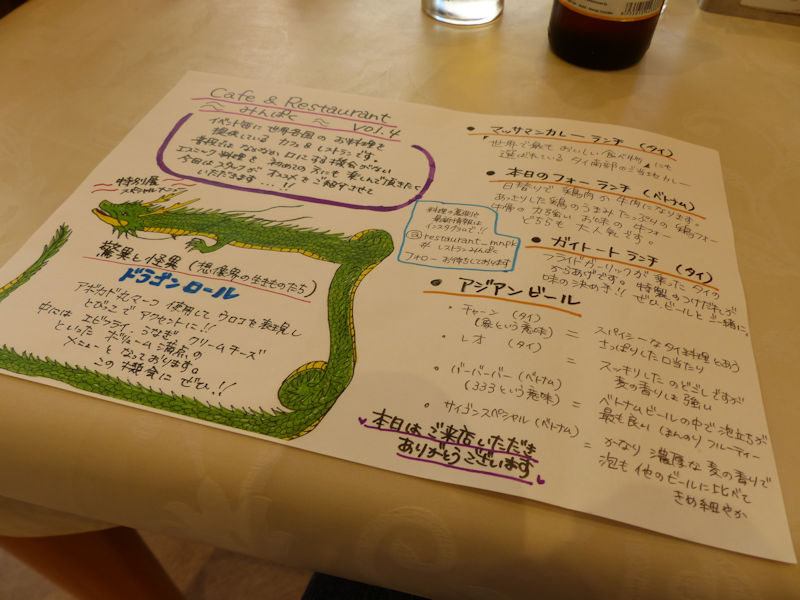 Cafe & Restaurant
〜 みんぱく 〜 Vol.4
イベント毎に世界各国のお料理を
提供している カフェ&レストランです。
普段は なかなか 口にする機会がない
エスニック料理を 初めての方にも 楽しんで頂きたく
今回はスタッフが オススメを ご紹介させて
いただきます…!!
特別展
スペシャルメニュー
驚異と怪異 (想像界の生きものたち)
ドラゴンロール
アボカドを丸々一コ 使用して ウロコを表現し
とびこで アクセントに!!
中には エビフライ、うなぎ、クリームチーズ
といった ボリューム満点の
メニューと なっております。
この機会に ぜひ!!
料理の裏側や
最新情報は
インスタグラムで!!
@restaurant_mnpk
# レストランみんぱく
フォロー お待ちしております
• マッサマンカレー ランチ (タイ)
"世界で最も おいしい 食べ物"にも
選ばれている タイ南部の ご当地カレー
• 本日のフォー ランチ (ベトナム)
日替りで 鶏肉か 牛肉になります。
あっさりした鶏のうまみ たっぷりの 鶏フォー
牛骨の 力強い お味の 牛フォー
どちらも 大人気です。
• ガイトート ランチ (タイ)
フライドガーリックが 乗った タイの
からあげです。 特製のつけだれが
味の決めき!! ぜひ、ビールと ご一緒に。
• アジアンビール
・ チャーン (タイ)
(象という意味) = スパイシーなタイ料理とあう
さっぱりした口当たり
・ レオ (タイ) = スッキリした のどごしですが
麦の香りは強い
・ バーバーバー (ベトナム)
(333という意味) = ベトナムビールの中で 泡立ちが
最も良い ほんのり フルーティー
・ サイゴンスペシャル (ベトナム) = かなり 濃厚な 麦の香りで
泡も 他の ビールに比べて
きめ細やか
本日は ご来店いただき
ありがとう ございます